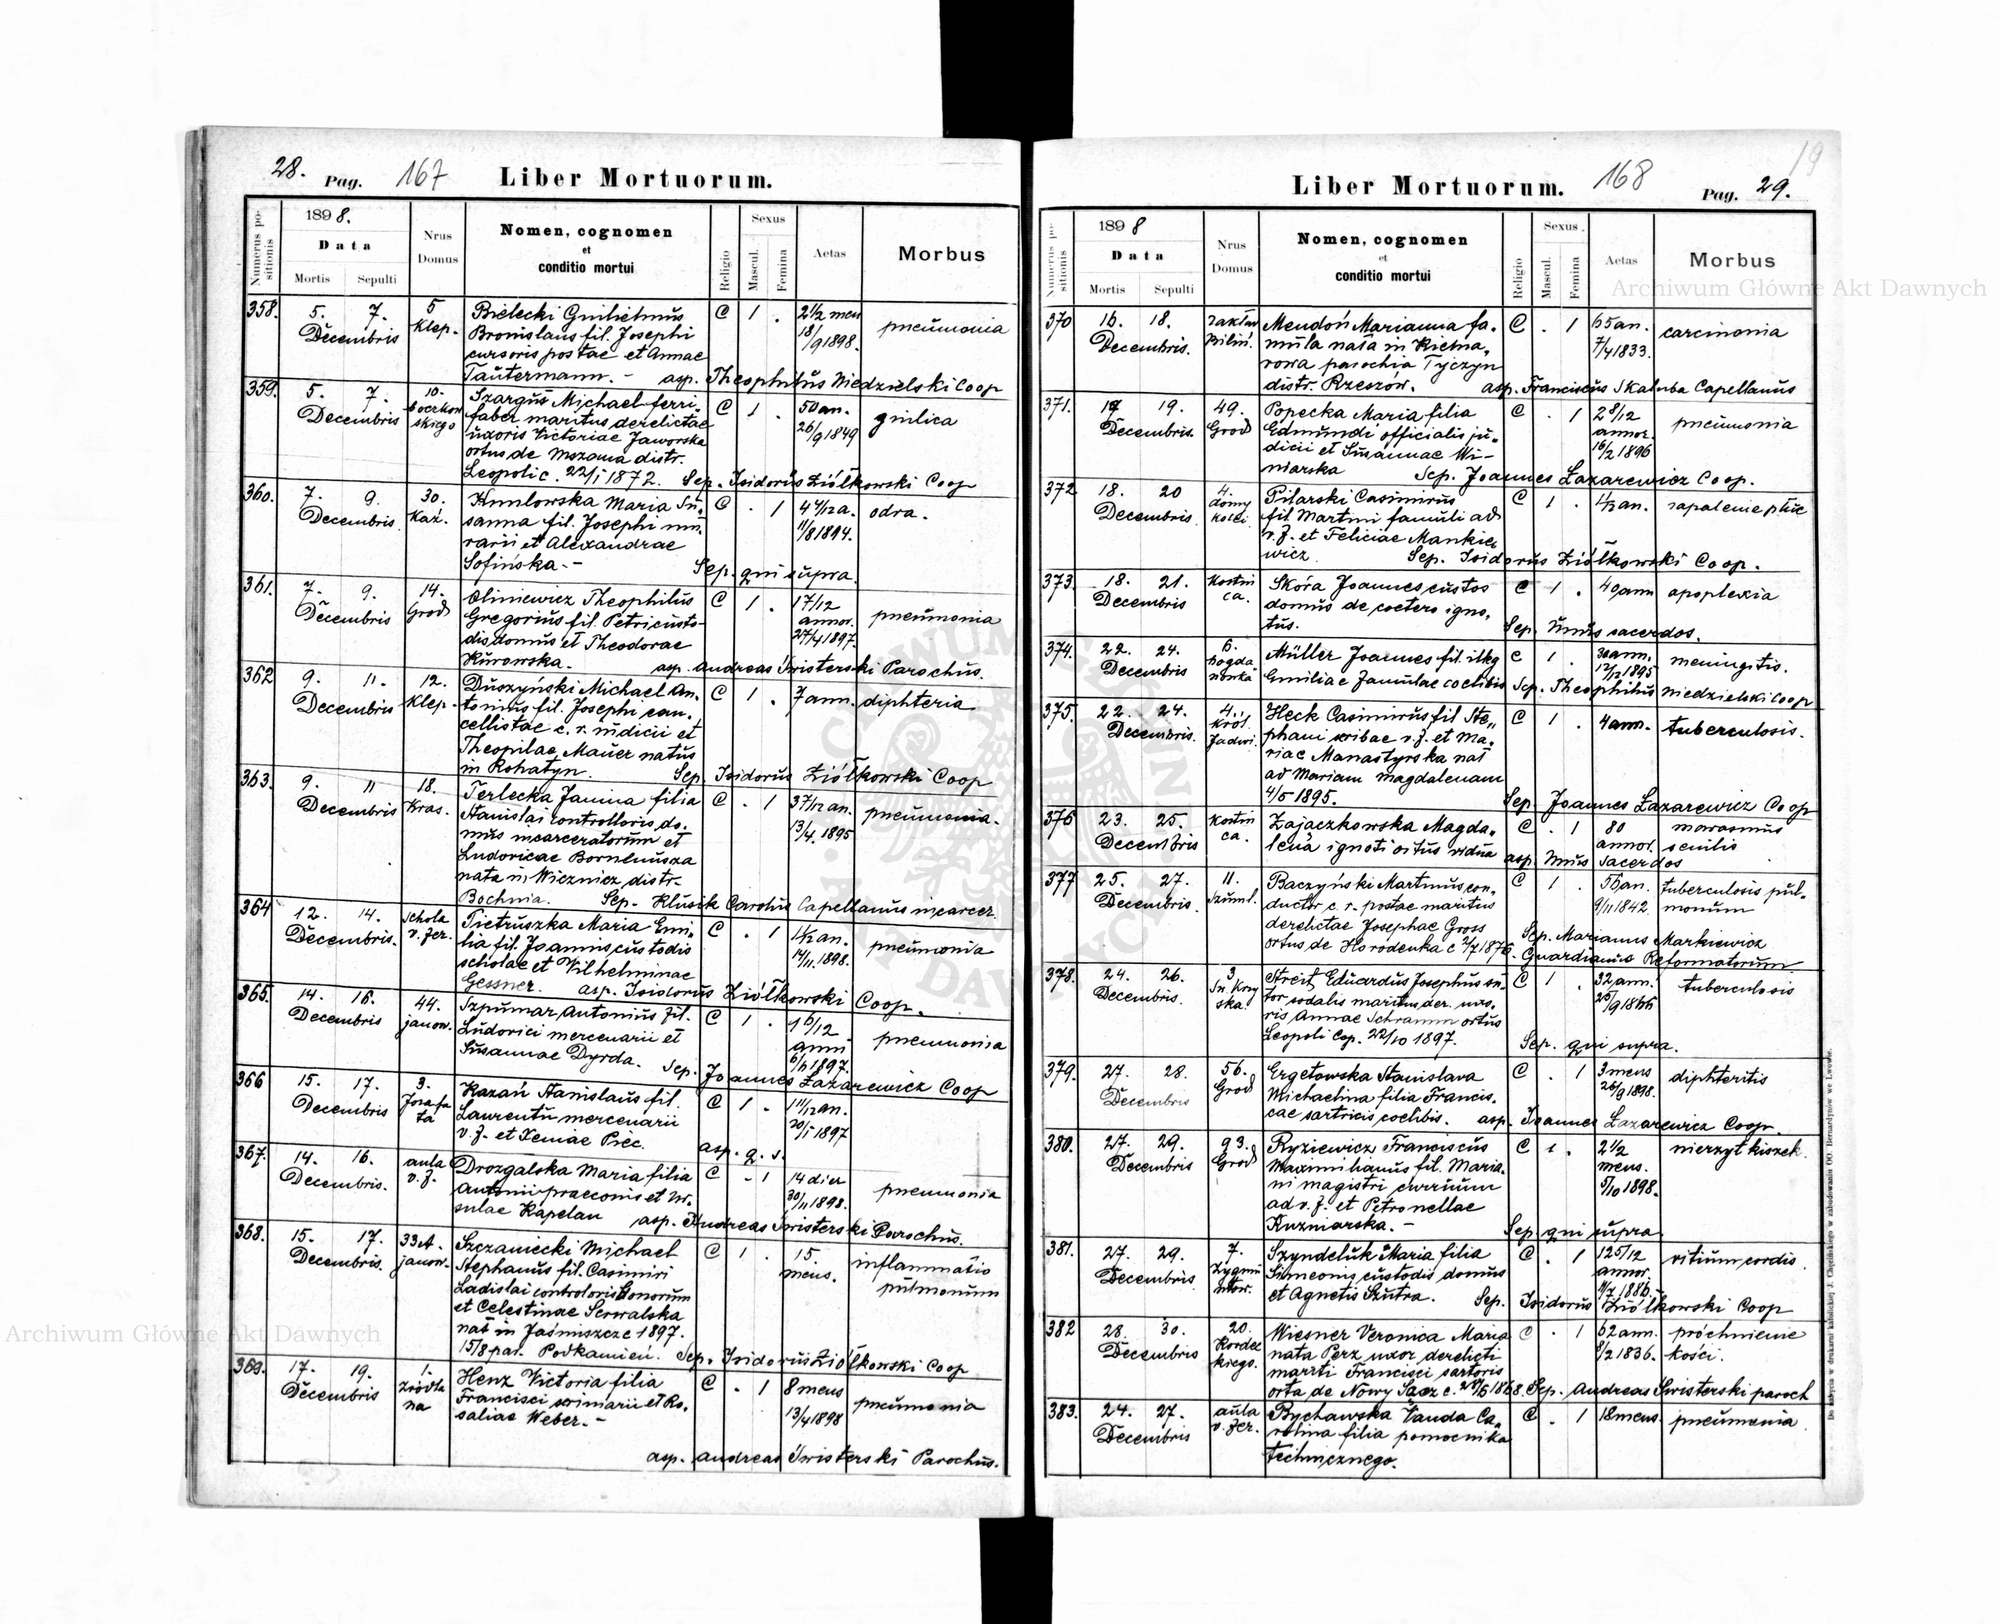 28.
Pag. 167
Liber Mortuorum.
Numerus po-
sitionis
1898.
Data
Mortis
Sepulti
Nrus
Domus
Nomen, cognomen
et
conditio mortui
Religio
Sexus
Mascul.
Femina
Aetas
Morbus
358. 5. 7. 5 Bielecki Guilielmus C 1 . 2 1/2 mens
Decembris Klep. Bronislaus fil. Josephi 18/9 1898. pneumonia
cursoris postae et Annae
Tautermann. - asp. Theophilus Niedzielski Coop
359. 5. 7. 10. Szargus Michael ferri C 1 . 50 an. gnilica
Decembris boczkow faber maritus derelictae 26/9 1849
skiego uxoris Victoriae Jaworska
ortus de Mszana distr.
Leopoli c. 22/1 1872. Sep. Isidorus Ziółkowski Coop
360. 7. 9. 30. Maria Su- C . 1 4 4/12 a. odra.
Decembris. Kaź. sanna fil. Josephi mu- 11/8 1894.
rarii et Alexandrae
Sofińska. - Sep. qui supra.
361. 7. 9. 14. Oliniewicz Theophilus C 1 . 1 7/12
Decembris Grod Gregorius fil. Petri custo- annor. pneumonia
dis domus et Theodorae 27/4 1897.
Kurowska. - asp. Andreas Swisterski Parochus.
362 9. 11. 12. Duszyński Michael An- C 1 . 7 ann. diphteria
Decembris Klep. tonius fil. Josephi can-
cellistae c. r. iudicii et
Theopilae Mauer natus
in Rohatyn. Sep. Isidorus Ziółkowski Coop
363. 9. 11 18. Terlecka Janina filia C . 1 3 7/12 an. pneumonia.
Decembris Kras. Stanislai controlloris do- 13/4. 1895
mus incarceratorum et
Ludovicae
nata in Wiśznicz distr.
Bochnia. Sep. Klusik Carolus Capellanus incarcer.
364 12. 14. schola Pietruszka Maria Emi- C . 1 1 1/2 an. pneumonia
Decembris. v. Zer. lia fil. Joannis custodis 14/11. 1898.
scholae et Vilhelminae
Gessner. asp. Isidorus Ziółkowski Coop.
365. 14. 16. 44. Szpunar Antonius fil. C 1 . 1 6/12
Decembris janow. Ludovici mercenarii et anni pneumonia
Susannae Dyrda. Sep. Joannes Łazarewicz Coop
366 15. 17. 3. Kazań Stanislaus fil. C 1 . 1 11/12 an.
Decembris Jozafa Laurentii mercenarii 20/1 1897
ta v. Z. et Xeniae Piec. asp. q. s.
367. 14. 16. aula Drozgalska Maria filia C . 1 14 dier pneumonia
Decembris. v. Z. Antonii praeconis et Ur- 30/11 1898.
sulae Kapelan asp. Andreas Swisterski Parochus.
368. 15. 17. 33A. Szczaniecki Michael C 1 . 15 inflammatio
Decembris. janow. Stephanus fil. Casimiri mens. pulmonum
Ladislai controloris bonorum
et Celestinae Serwalska
nat in Jaśniszcze 1897.
15/8 par. Podkamień. Sep. Isidorus Ziółkowski Coop
369. 17. 19. 1. Henz Victoria filia C . 1 8 mens pneumonia
Decembris Zródla Francisci et Ro- 13/4 1898
na saliae Weber. -
asp. Andreas Swisterski Parochus.
168
Liber Mortuorum.
Pag. 29.
19
Numerus po-
sitionis
1898
Data
Mortis
Sepulti
Nrus
Domus
Nomen, cognomen
et
conditio mortui
Religio
Sexus.
Mascul.
Femina
Aetas
Morbus
370 16. 18. zakład Mendoń Marianna fa- C . 1 65 an. carcinonia
Decembris. Biliń. mula nata in Kielna- 7/4 1833.
rowa parochia Tyczyn
distr. Rzeszów. asp. Franciscus Skałuba Capellanus
371. 17 19. 49. Popecka Maria filia C . 1 2 8/12 pneumonia
Decembris. Grod Edmundi officialis ju- annor.
dicii et Susannae Wi- 16/2 1896
niarska Sep. Joannes Łazarewicz Coop.
372 18. 20 4. Pilarski Casimirus C 1 . 1 1/2 an. zapalenie płuc
Decembris. domy fil. Martini famuli ad
kolei v. Z. et Feliciae Mankie-
wicz Sep. Isidorus Ziółkowski Coop.
373 18. 21. Kostni Skóra Joannes custos C 1 . 40 ann apoplexia
Decembris ca. domus de coetero igno-
tus. Sep. unus sacerdos.
374. 22. 24. 6. Müller Joannes fil. illeg C 1 . 3 ann. meningitis.
Decembris bogda- Emiliae famulae coelibis 12/12 1895
nówka Sep. Theophilus Niedzielski Coop
375. 22. 24. 4. Heck Casimirus fil Ste- C 1 . 4 ann. tuberculosis.
Decembris. Król. phani scribae v. Z. et Ma-
Jadwi. riae Manastyrska nat
ad Mariam Magdalenam
4/5 1895. Sep. Joannes Łazarewicz Coop
376 23. 25. Kostni Zajaczkowska Magda- C . 1 80 marasmus
Decembris ca. lena ignoti ortus vidua annor. senilis
asp. unus sacerdos
377 25. 27. 11. Baczyński Martinus con- C 1 . 56 an. tuberculosis pul-
Decembris. Szuml. ductor c. r. postae maritus 9/11 1842. monum
derelictae Josephae Gross Sep. Marianus Markiewicz
ortus de Horodenka c 2/7 1876. Guardianus Reformatorum
378. 24. 26. 3 Streit Eduardus Josephus su- C 1 . 32 ann. tuberculosis
Decembris. Sn. Krzy tor sodalis maritus der. uxo- 25/9 1866
ska. ris Annae Schramm ortus
Leopoli Cop. 22/10 1897. Sep. qui supra.
379. 27. 28. 56. Ergetowska Stanislava C . 1 3 mens diphteritis
Decembris Grod Michaelina filia Francis- 26/9 1898.
cae sartricis coelibis. asp. Joannes Łazarewicz Coop.
380. 27. 29. 93. Ryziewicz Franciscus C 1 . 2 1/2 nierzyt kiszek.
Decembris Grod Maximilianus fil. Maria- mens.
ni magistri curruum 5/10 1898.
ad v. Z. et Petronellae
Kuzniarska. - Sep. qui supra
381. 27. 29. 7. Szyndeluk Maria filia C . 1 12 5/12 vitium cordis.
Decembris Zygmu Simeonis custodis domus annor.
ntow. et Agnetis Szutra. Sep. Isidorus Ziółkowski Coop
382 28. 30. 20. Wiesner Veronica Maria C . 1 62 ann. próchnienie
Decembris Kordec nata Perz uxor derelicti 8/2 1836. kości.
kiego. mariti Francisci sartoris
orta de Nowy Sącz c. 1868. Sep. Andreas Swisterski paroch
383. 24. 27. aula Bychawska Vanda Ca- C . 1 18 mens pneumonia
Decembris v. Zer. rolina filia pomocnika
technicznego.
Do nabycia w drukarni katolickiej J. Chęcińskiego w zabudowaniu OO. Bernardynów we Lwowie.
Archiwum Główne Akt Dawnych
Archiwum Główne Akt Dawnych